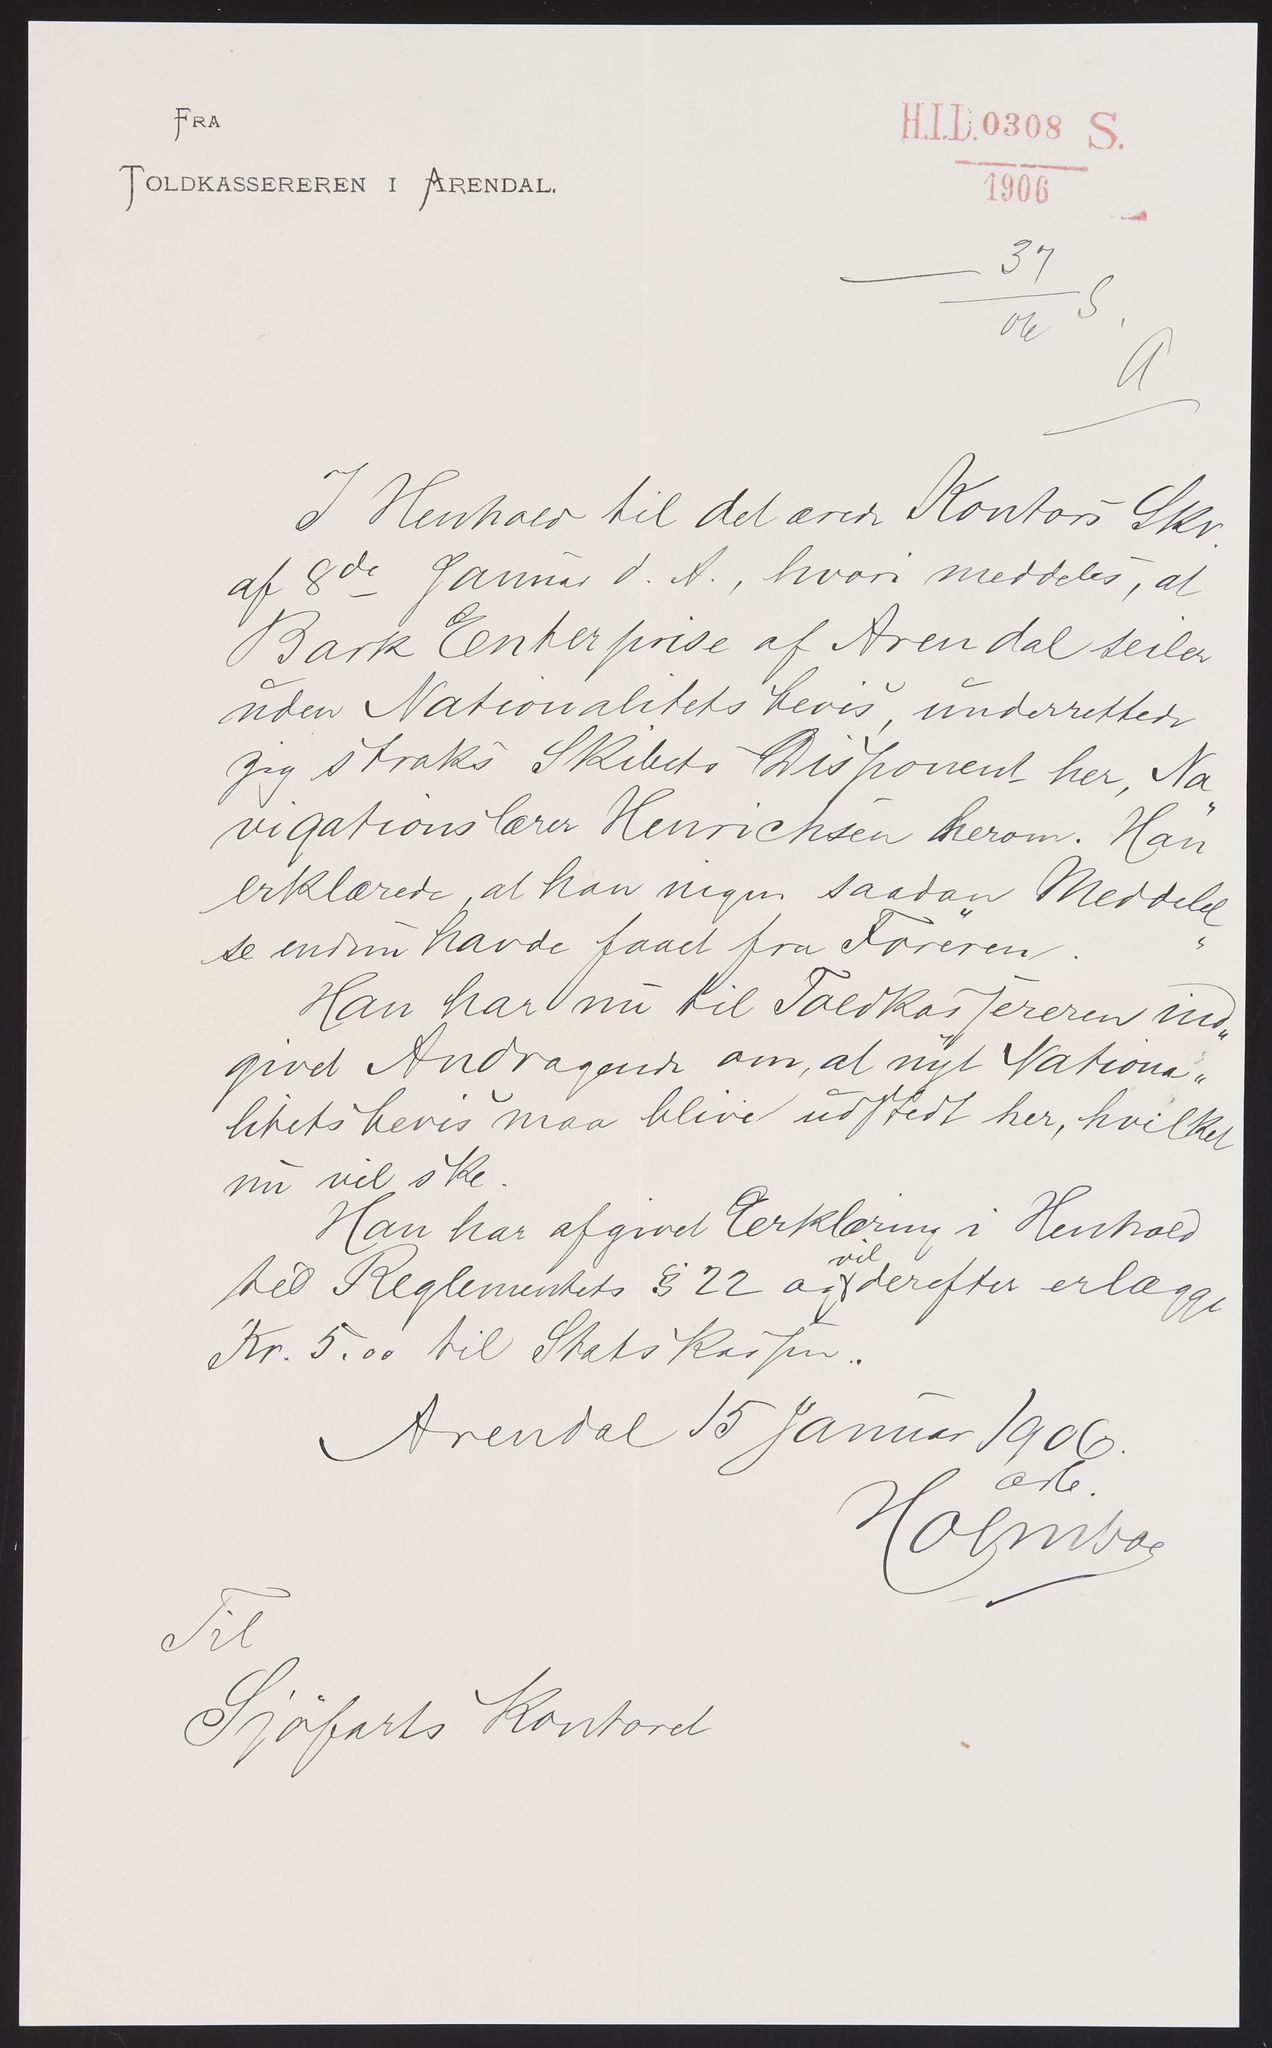 FRA
TOLDKASSEREREN I ARENDAL.
H.I.D. 0308 S.
1906
37
06 S.
A
I Henhold til det ærede Kontors Skr.
af 8de Januar d. A., hvori meddeles, at
Bark Enterprise af Arendal seiler
uden Nationalitetsbevis, underrettede
jeg straks Skibets Disponent her, Na„
vigationslærer Henrichsen herom. Han
erklærede, at han ingen saadan Meddelel„
se endnu havde faaet fra Føreren.
Han har nu til Toldkassereren ind„
givet Andragende om, at nyt Nationa„
litetsbevis maa blive udstedt her, hvilket
nu vil ske.
Han har afgivet Erklæring i Henhold
til Reglementets § 22 og vil derefter erlægge
Kr. 5.00 til Statskassen.
Arendal 15 Januar 1906.
Holmboe
Til
Sjøfartskontoret